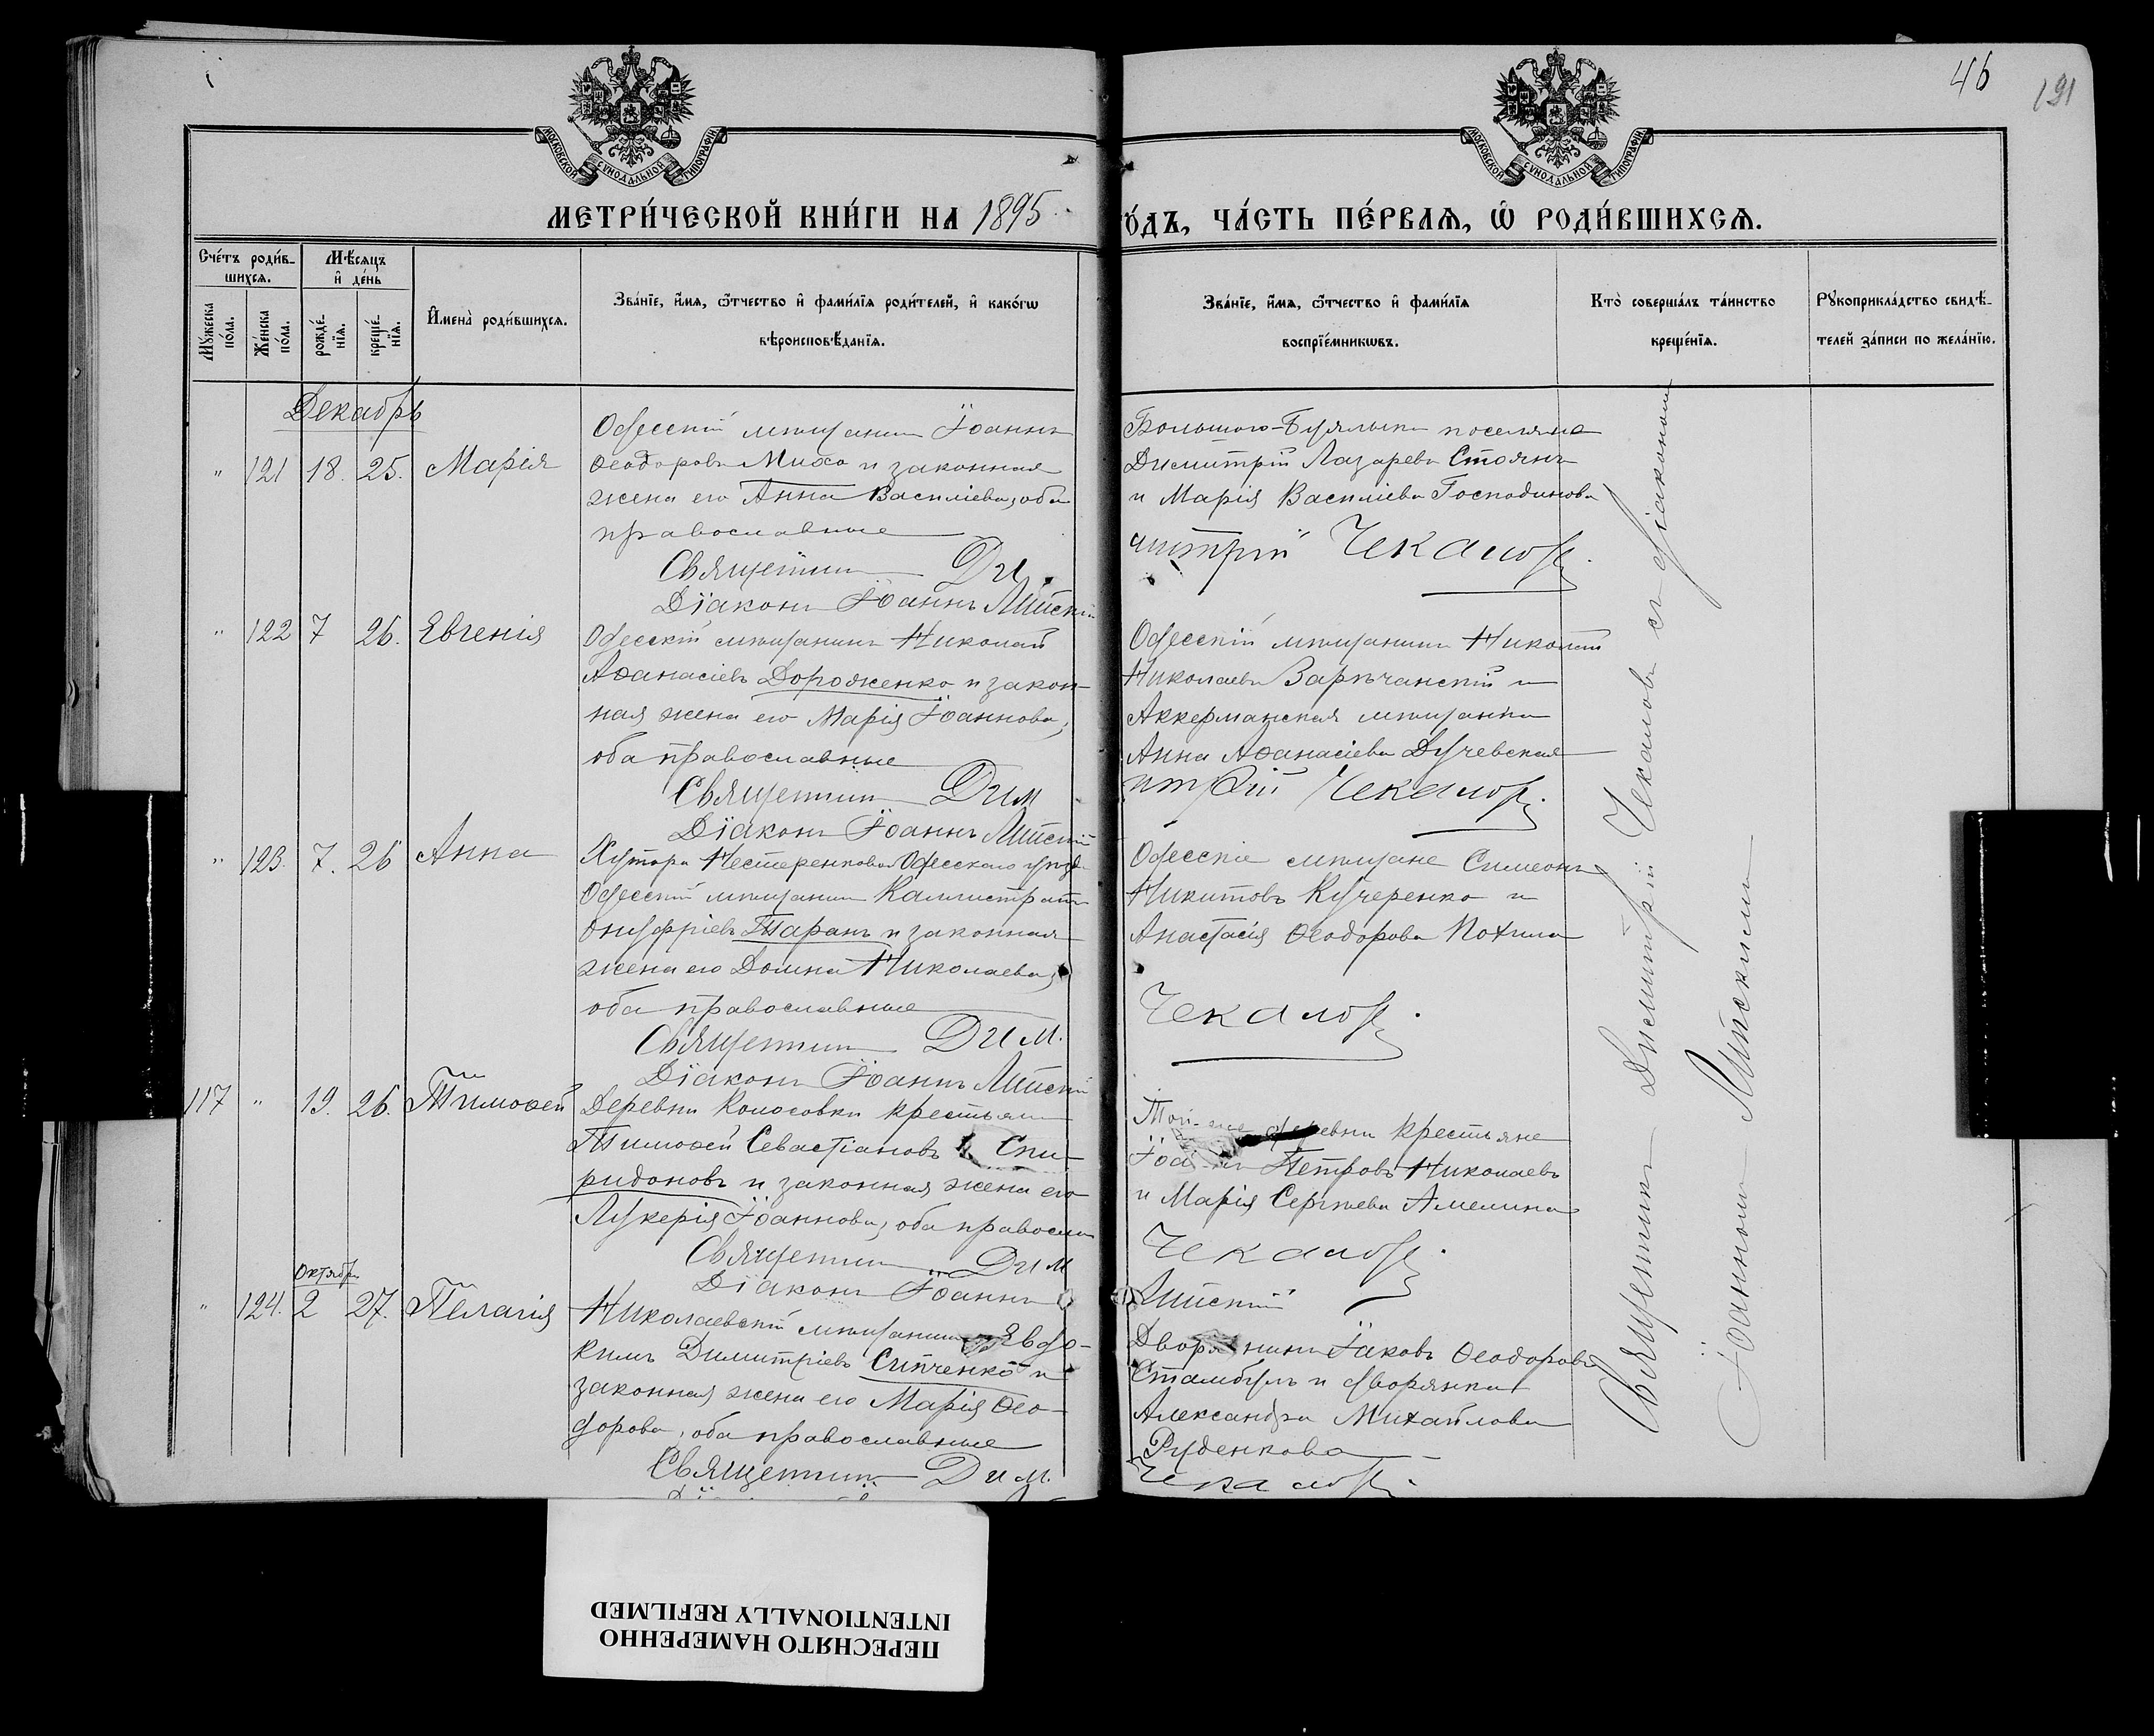 46
191
МОСКОВСКОЙ СУНОДАЛЬНОЙ ТИПОГРАФІИ
МОСКОВСКОЙ СУНОДАЛЬНОЙ ТИПОГРАФІИ
МЕТРИ́ЧЕСКОЙ КНИ́ГИ НА 1895
О́ДЪ, ЧА́СТЬ ПЕ́РВАЯ, Ѡ РОДИ́ВШИХСЯ.
Сче́тъ роди́в-
шихся.
Му́жеска
по́ла.
Же́нска
по́ла.
Мѣ́сяцъ
и де́нь
рожде́-
нїя.
креще́-
нїя.
Имена̀ роди́вшихся.
Зва́нїе, и́мя, ѻ́тчество и фами́лїя роди́телей, и како́гѡ
вѣроисповѣ́данїя.
Зва́нїе, и́мя, ѻ́тчество и фами́лїя
воспрїе́мникѡвъ.
Кто̀ соверша́лъ та́инство
креще́нїя.
Рꙋкоприкла́дство свидѣ́-
телей за́писи по жела́нїю.
Декабрь
" 121 18. 25. Марія
Одесскій мѣщанинъ Іоаннъ
Ѳеодоровъ Михо и законная
жена его Анна Василіева, оба
православные
Священникъ Ди
Діаконъ Іоаннъ Липскій
Большого-Буялыка поселяне
Димитрій Лазаревъ Стоянъ
и Марія Василіева Господинова
митрій Чекаловъ.
" 122 7 26. Евгенія
Одесскій мѣщанинъ Николай
Аѳанасіевъ Дороженко и закон-
ная жена его Марія Іоаннова,
оба православные
Священникъ Дим
Діаконъ Іоаннъ Липскій
Одесскій мѣщанинъ Николай
Николаевъ Варѣчанскій и
Аккерманская мѣщанка
Анна Аѳанасіева Дучевская
итрій Чекаловъ.
" 123. 7. 26 Анна
Хутора Нестеренковой Одесскаго уѣзда
Одесскій мѣщанинъ Каллистратъ
Онуфріевъ Таранъ и законная
жена его Домна Николаева,
оба православные
Священникъ Дим.
Діаконъ Іоаннъ Липскій
Одесскіе мѣщане Симеонъ
Никитовъ Кучеренко и
Анастасія Ѳеодорова Похила
Чекаловъ.
117 " 19. 26. Тимоѳей
Деревни Колосовки крестьянинъ
Тимоѳей Севастіановъ Спи-
ридоновъ и законная жена его
Лукерія Іоаннова, оба правосл
Священникъ Дим
Діаконъ Іоаннъ
Той-же деревни крестьяне
Петровъ Николаевъ
и Марія Сергѣева Амелина
Чекаловъ.
Липскій
Октябр.
" 124. 2 27. Пелагія
Николаевскій мѣщанинъ Евдо-
кимъ Димитріевъ Сипченко и
законная жена его Марія Ѳео-
дорова, оба православные
Священникъ Дим.
Дворянинъ Іаковъ Ѳеодоровъ
Стамбулъ и дворянка
Александра Михайлова
Руденкова
Чекаловъ.
Священникъ Димитрій Чекаловъ съ діакономъ
Іоанномъ Липскимъ
ПЕРЕСНЯТО НАМЕРЕННО
INTENTIONALLY REFILMED